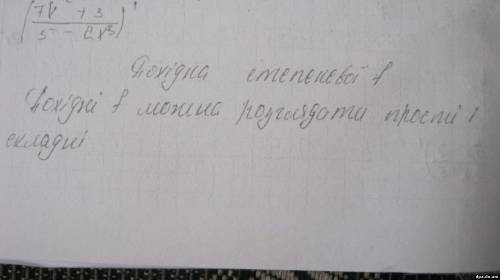 Похідна степеневої f
Похідні f можна розглядати прості і
складні